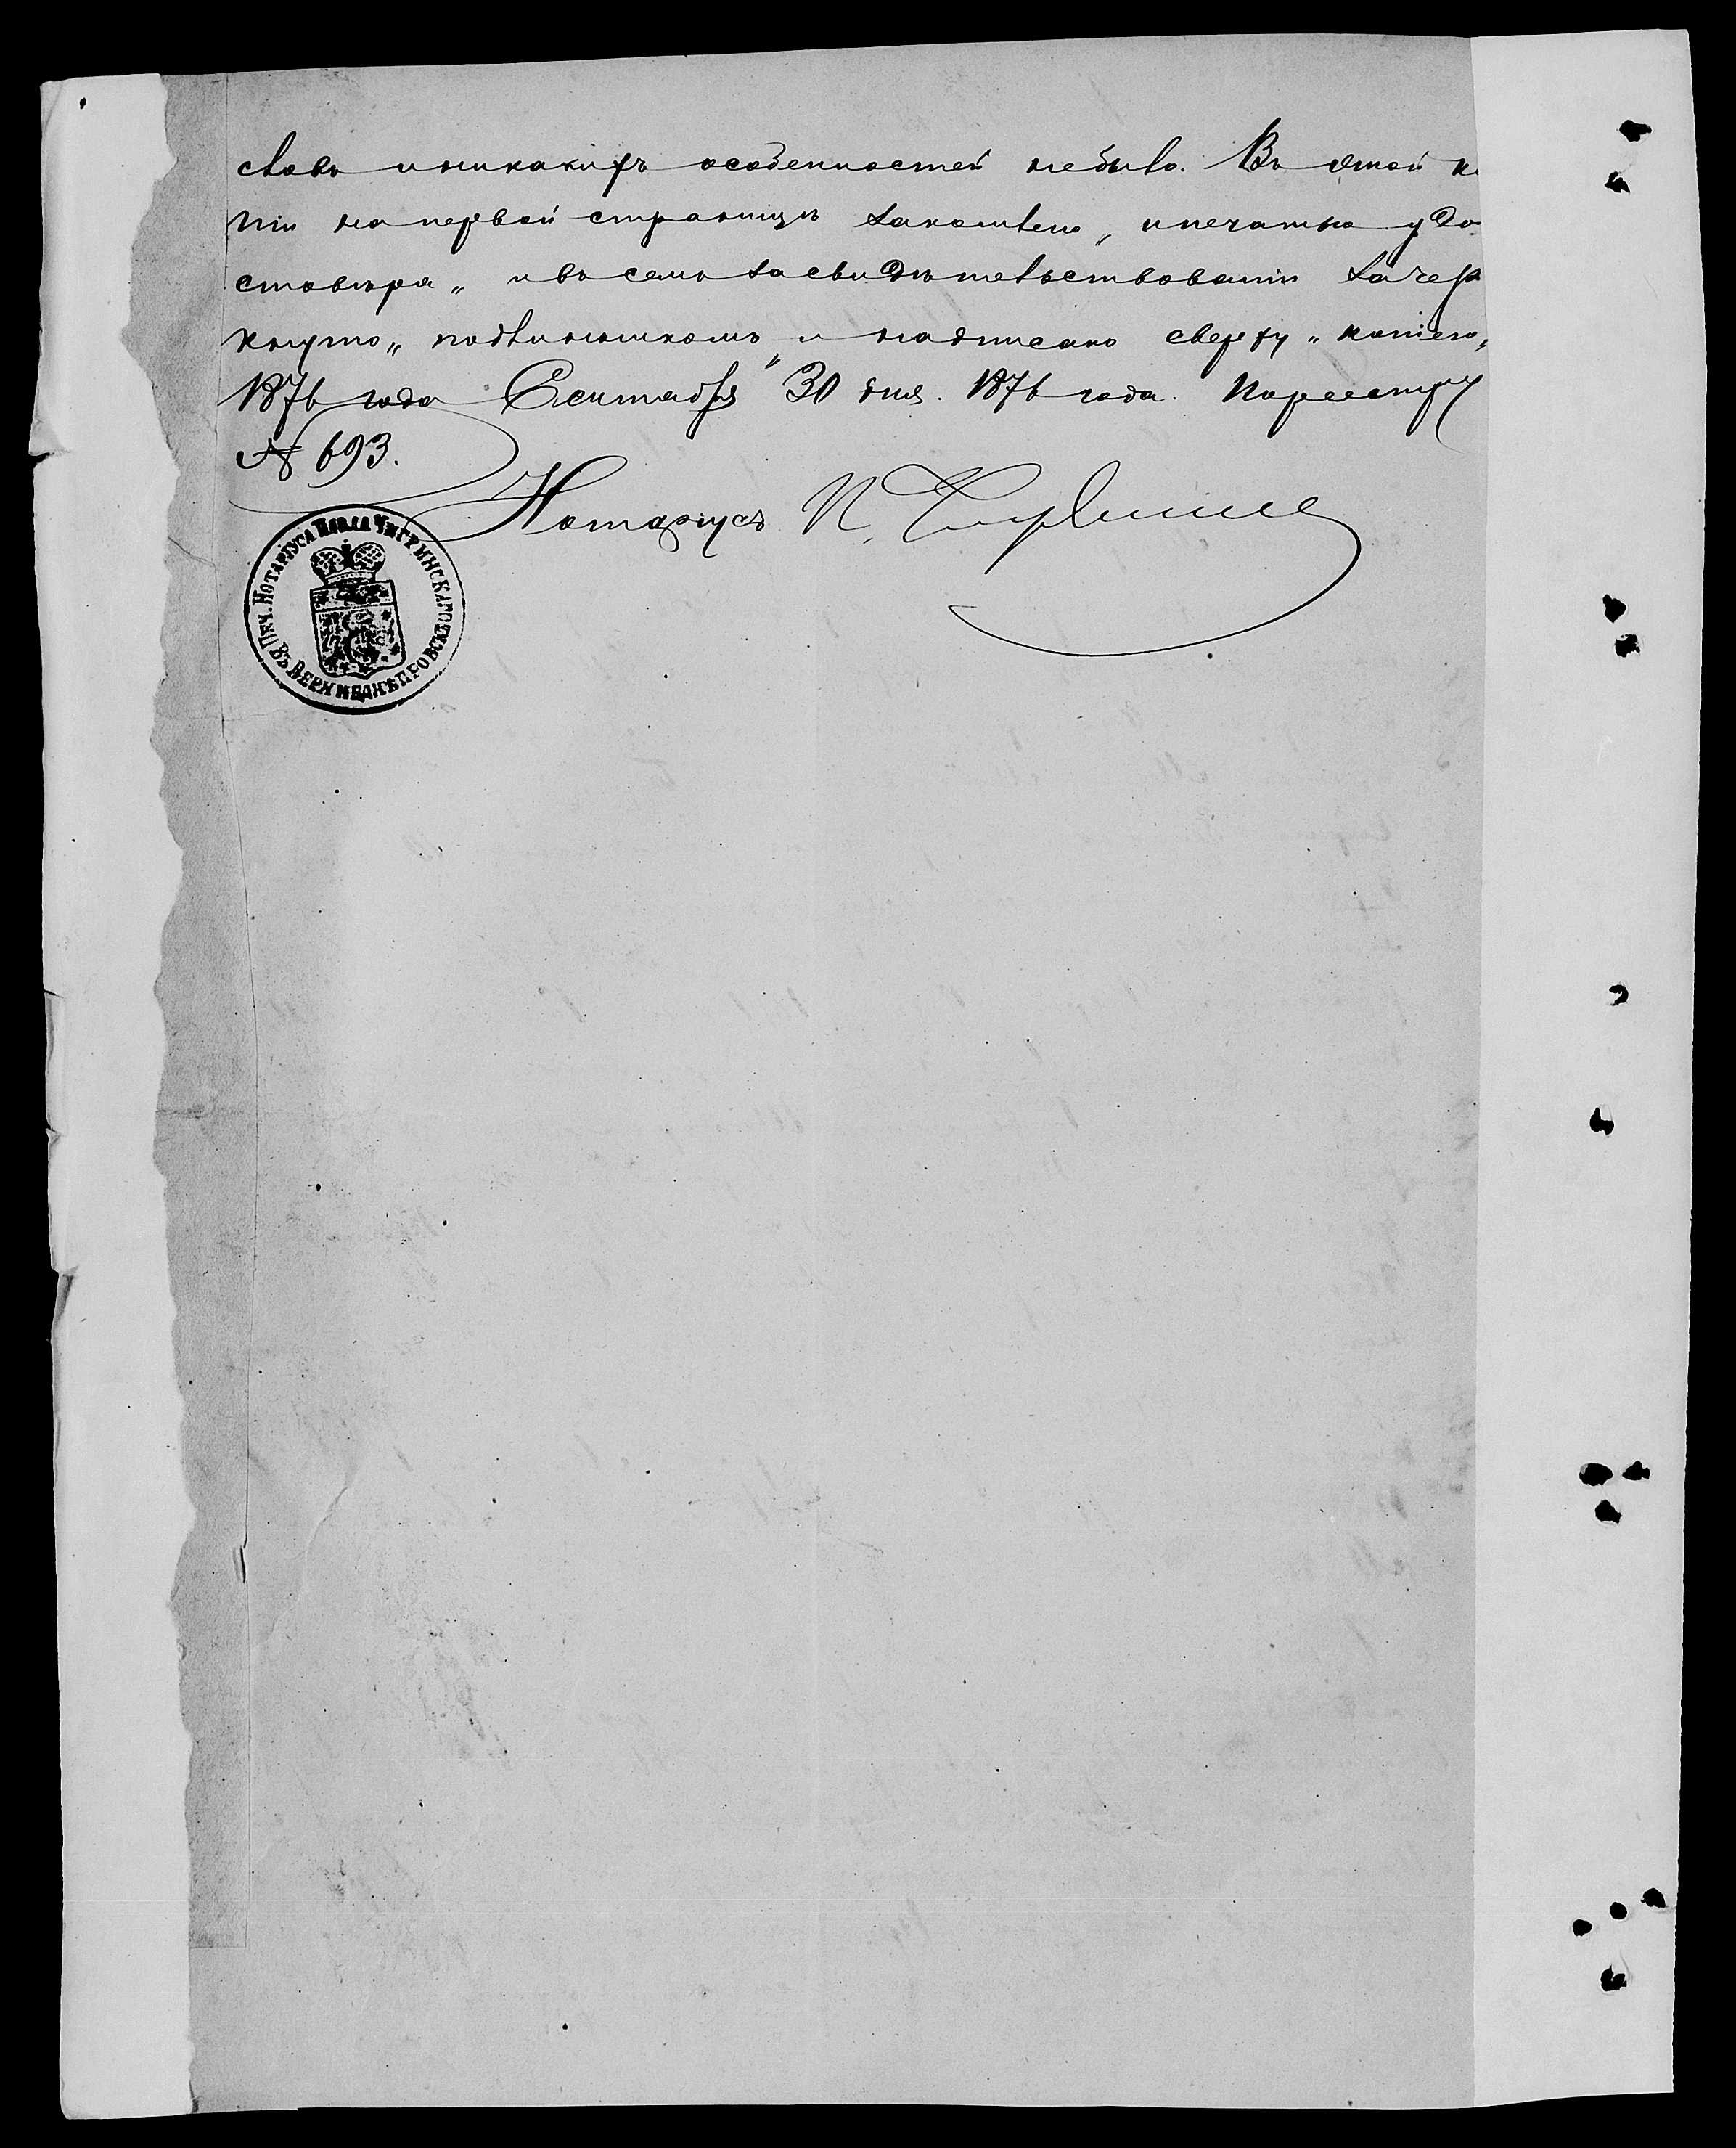 словъ и никакихъ особенностей небыло. Въ этой к
піи на первой страницѣ заклеплено „ и печатью удо
стовѣря „ и въ семъ засвидѣтельствованіи зачер
кнуто „ подлинникомъ „ и надписано сверху „ копіею „
1876 года Сентября 30 дня. 1876 года. По реестру
№ 693.
Нотаріусъ П.
Печ. Нотаріуса Павла Чигринскаго
въ Верхнеднѣпровскѣ